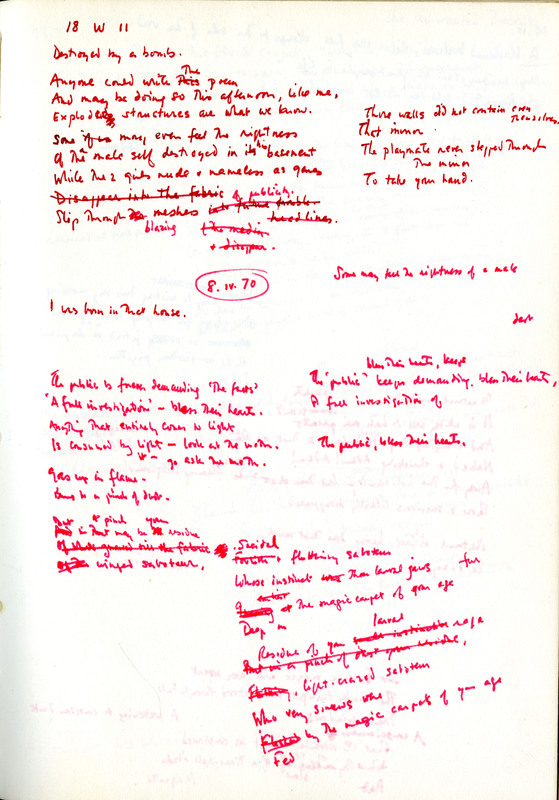 18 W 11
Destroyed by a bomb.
Anyone could write This The poem
And may be doing so this afternoon, like me,
Exploded structures are what we know.
Some may even feel the rightness
Of the male self destroyed in its own basement
While the 2 girls nude + nameless as genes
Disappear into the fabric of publicity.
Slip through the meshes into future
blazing headlines.
+ disappear.
Those walls did not contain even themselves.
That mirror.
The playmate never stepped through
The mirror
To take your hand.
8.iv.70
Some may feel the rightness of a male
I was born in that house.
dart
The public is forever demanding "The facts"
"A full investigation" – bless their hearts.
Anything that entirely comes to light
Is consumed by light – look at the moth.
go ask the moth.
Goes up in flame.
Turns to a pinch of dust.
bless their hearts, keeps
The "public" keeps demanding, bless their hearts,
A full investigation of
The public, bless their hearts.
But a pinch your
in that may be the residue
winged saboteur,
Suicidal
+ fluttering saboteur
Whose instinct was Than larval jaws
the magic carpet of your age
Deep in
larval
Residue of your rage
But in a pinch of dust your residue,
light-crazed saboteur
Who very sinews were
by the magic carpets of your age
Fed